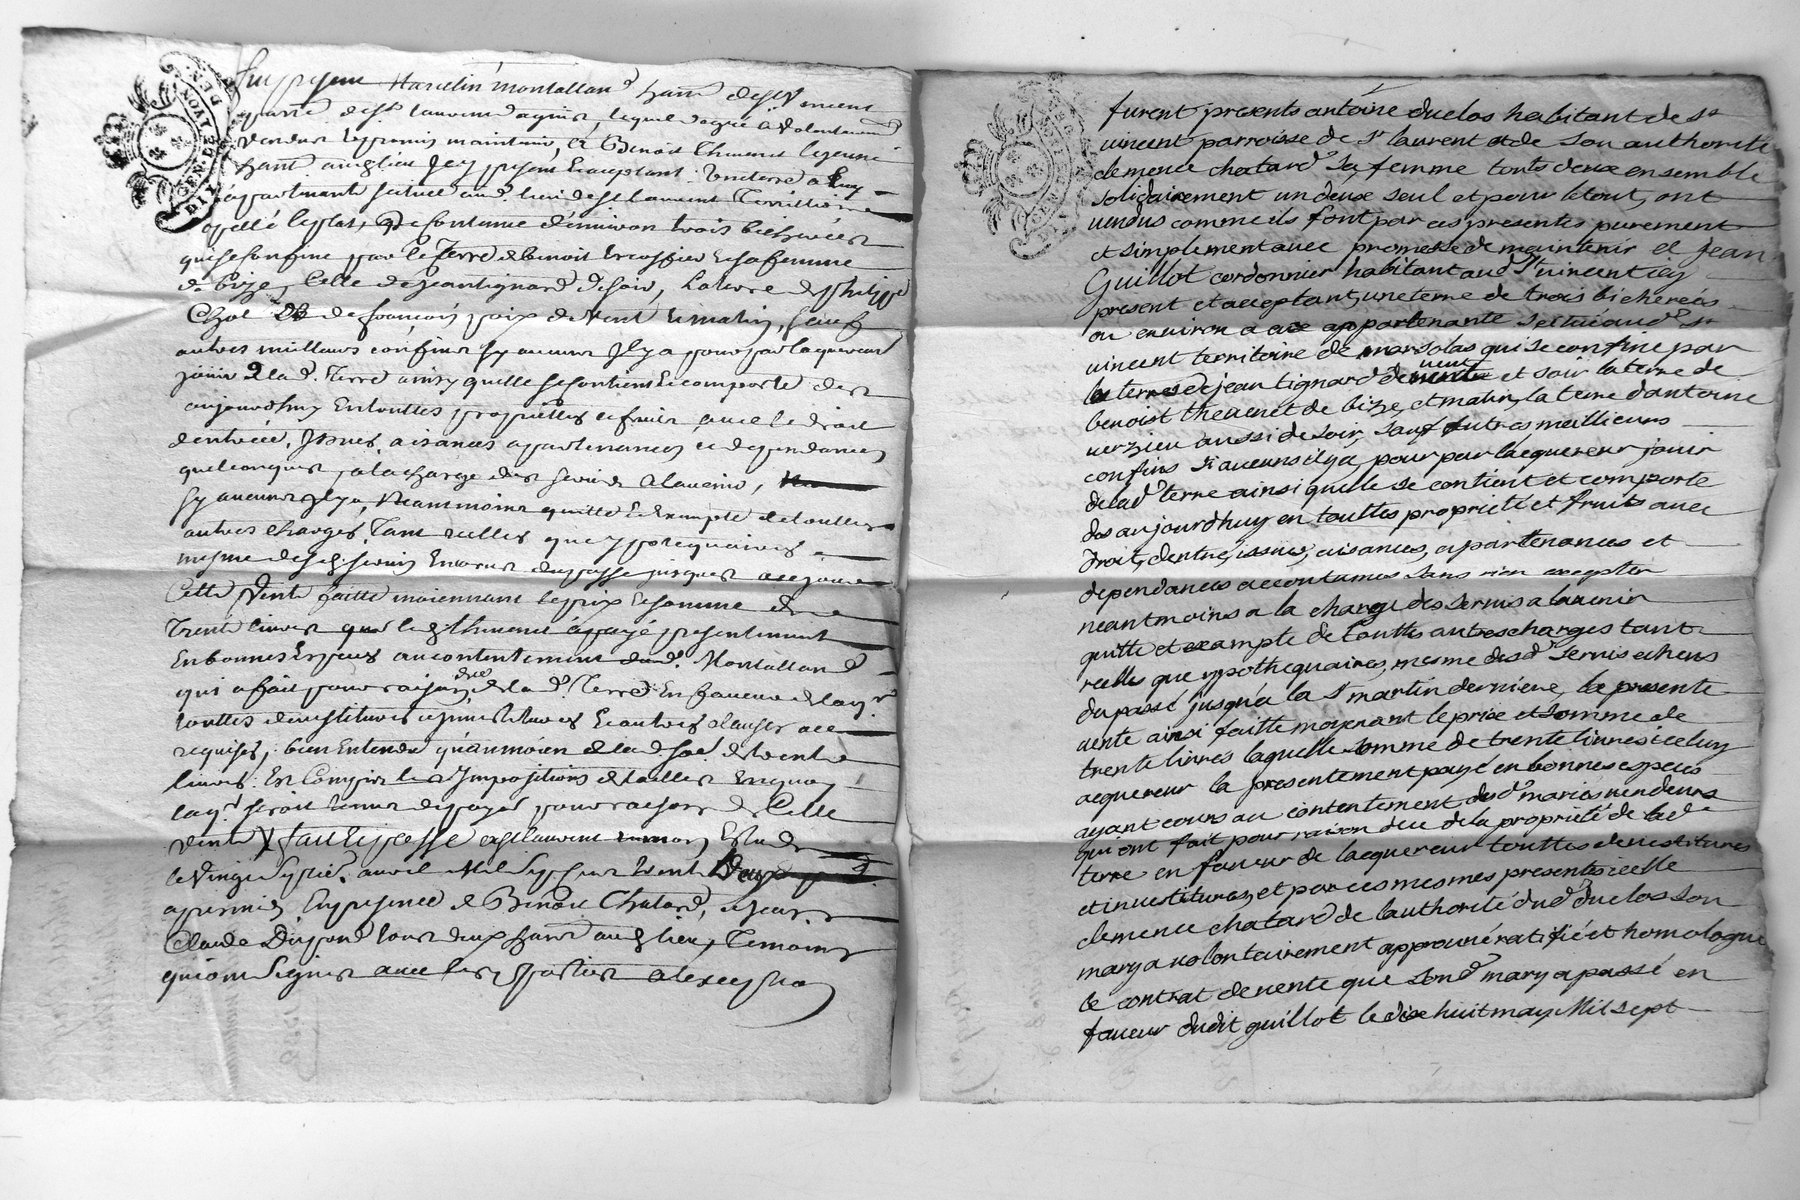 DE LYON
DIX. GEN. DE
fut present Marcelin montalland habt. de st vincent
parre. de st. laurent dagnis, lequel de gré à volontairemt.
vendu et promis maintenir, à Benoit Thevenet lejeune
habt. audt lieu Icy present et acceptant, une terre a luy
appartenant scituée aud. lieu de st laurent Territoire
apellé le plat, de contenue denviron trois bicherées
qui se confine par le Terre de benoit et sa femme
de bize, celle de Jean tignard de soir, la terre de philippe
de françois de vent et matin, sauf
autres meilleurs confins sy aucuns Il y a pour par laquereur
jouir de lad. Terre ainsy quelle se contient et comporte des
aujourdhuy en touttes proprietes et fruits avec le droit
dentrée, Issues, aisances appartenances et dependances
quelconques a la charge des servis a lavenir,
sy aucuns Il y a, Neanmoins quitte et exempte de touttes
autres charges, tant reelles que ypotequaires
mesme desd. servis et arrerages du passé jusques a ce jour
Cette Vente faitte moiennant le prix et somme de
Trente livres que led thevenet a payé presentement
En bonnes Especes au contentement dud. Montalland
qui a fait pour raison due de lad. Terre en faveur de laqr.
touttes devestitures et investitures et autres clauses a ce
requises, bien entendu quau moien de lad some de trente
livres En Compris les Impositions et tailles
laqr. seroit tenu de payer pour raison de Cette
Vente fait et passé a st laurent En mon Etude
le Vingt Septie. avril Mil Sept cent trent Deux
apres midy, En presence de Benoit Chatard, et sieur
Claude Dupond tous deux habts. aud lieu, Temoins
qui ont Signés avec les parties
furent presents antoine duclos habitant de st
vincent parroisse de st laurent et de son authorité
clemence chatard sa femme touts deux ensemble
solidairement un deux seul et pour le tout, ont
vendus comme ils font par ces presentes purement
et simplement avec promesse de maintenir a jean
Guillot cordonnier habitant aud st vincent icy
present et acceptant, une terre de trois bicherées
ou environ a eux appartenante scituée aud st
vincent territoire de marsolas qui se confine par
les terres de jean tignard de vent et soir la terre de
benoist thevenet de bize, et matin, la terre dantoine
verzieu aussi de soir, sauf autres, meilleurs
confins si aucuns il y a, pour par lacquereur jouir
de lad. terre ainsi quelle se contient et comporte
des aujourdhuy en touttes proprieté et fruits avec
droit, dentrée, issues, aisances, apartenances et
dependances accoutumes sans rien excepter
neantmoins a la charge des servis a lavenir
quitte et exampte de touttes autres charges tant
reelles que ypothequaires, mesme desd. servis echeus
du passé jusqua la st martin derniere, la presente
vente ainsi faitte moyenant le prix et somme de
trente livres laquelle somme de trente livres iceluy
acquereur la presentement payé en bonnes especes
ayant cours au contentement desd. maries vendeurs
qui ont fait pour raison deu de la proprieté de lad
terre en faveur de lacquereur touttes devestitures
et investitures, et par ces mesmes presentes icelle
clemence chatard de lauthorité dud. duclos son
mary a volontairement approuvé ratifié et homologué
le contrat de vente que sond. mary a passé en
faveur dudit guillot le dix huit may Mil sept